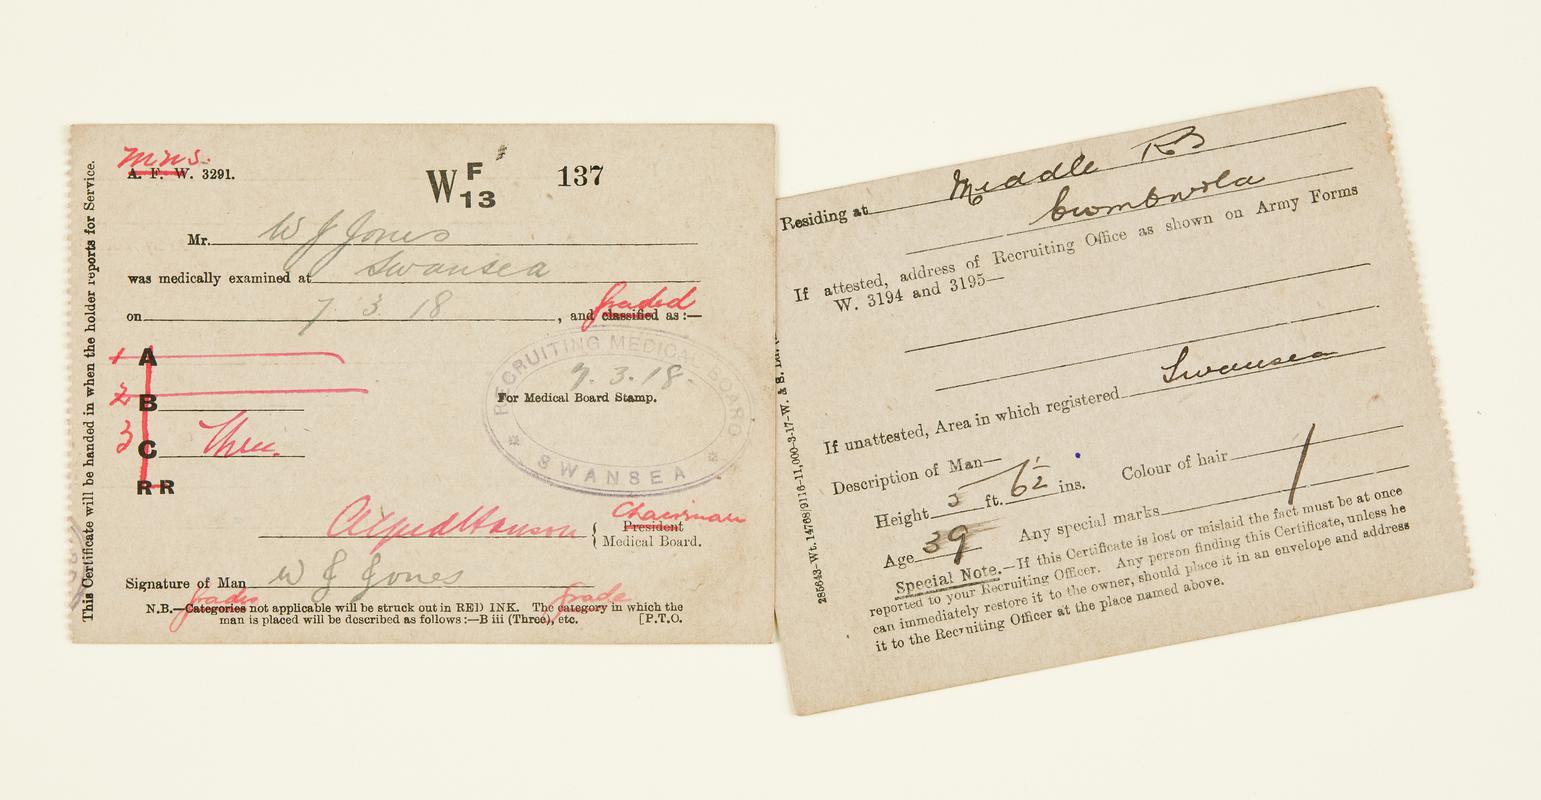 This Certificate will be handed in when the holder reports for Service.
M.N.S.
A. F. W. 3291.
W F 13 137
Mr. W J Jones
was medically examined at Swansea
on 7. 3. 18, and graded classified as :—
1 A
2 B
3 C Three.
RR
RECRUITING MEDICAL BOARD
7.3.18.
For Medical Board Stamp.
SWANSEA
Alfred Hanson { Chairman
President
Medical Board.
Signature of Man W J Jones
Grades grade
N.B.—Categories not applicable will be struck out in RED INK. The category in which the
man is placed will be described as follows :—B iii (Three), etc. [P.T.O.
285643—Wt. 14768/9116—11,000—3-17—W. & S. Ltd.
Residing at Middle Rd
Cwmbwrla
If attested, address of Recruiting Office as shown on Army Forms
W. 3194 and 3195—
If unattested, Area in which registered Swansea
Description of Man—
Height 5 ft. 6½ ins. Colour of hair
Age 39 Any special marks
Special Note.—If this Certificate is lost or mislaid the fact must be at once
reported to your Recruiting Officer. Any person finding this Certificate, unless he
can immediately restore it to the owner, should place it in an envelope and address
it to the Recruiting Officer at the place named above.